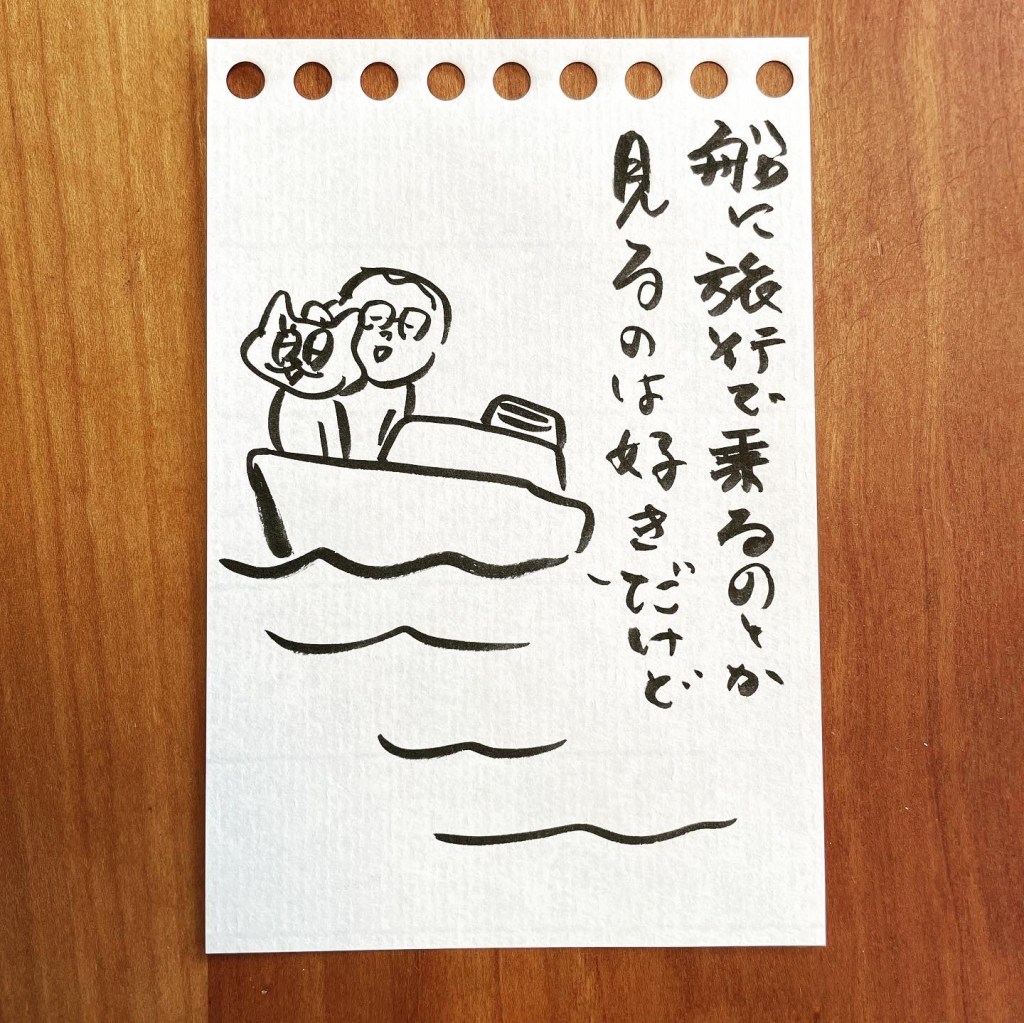 船に旅行で乗るのとか
見るのは好きだけど